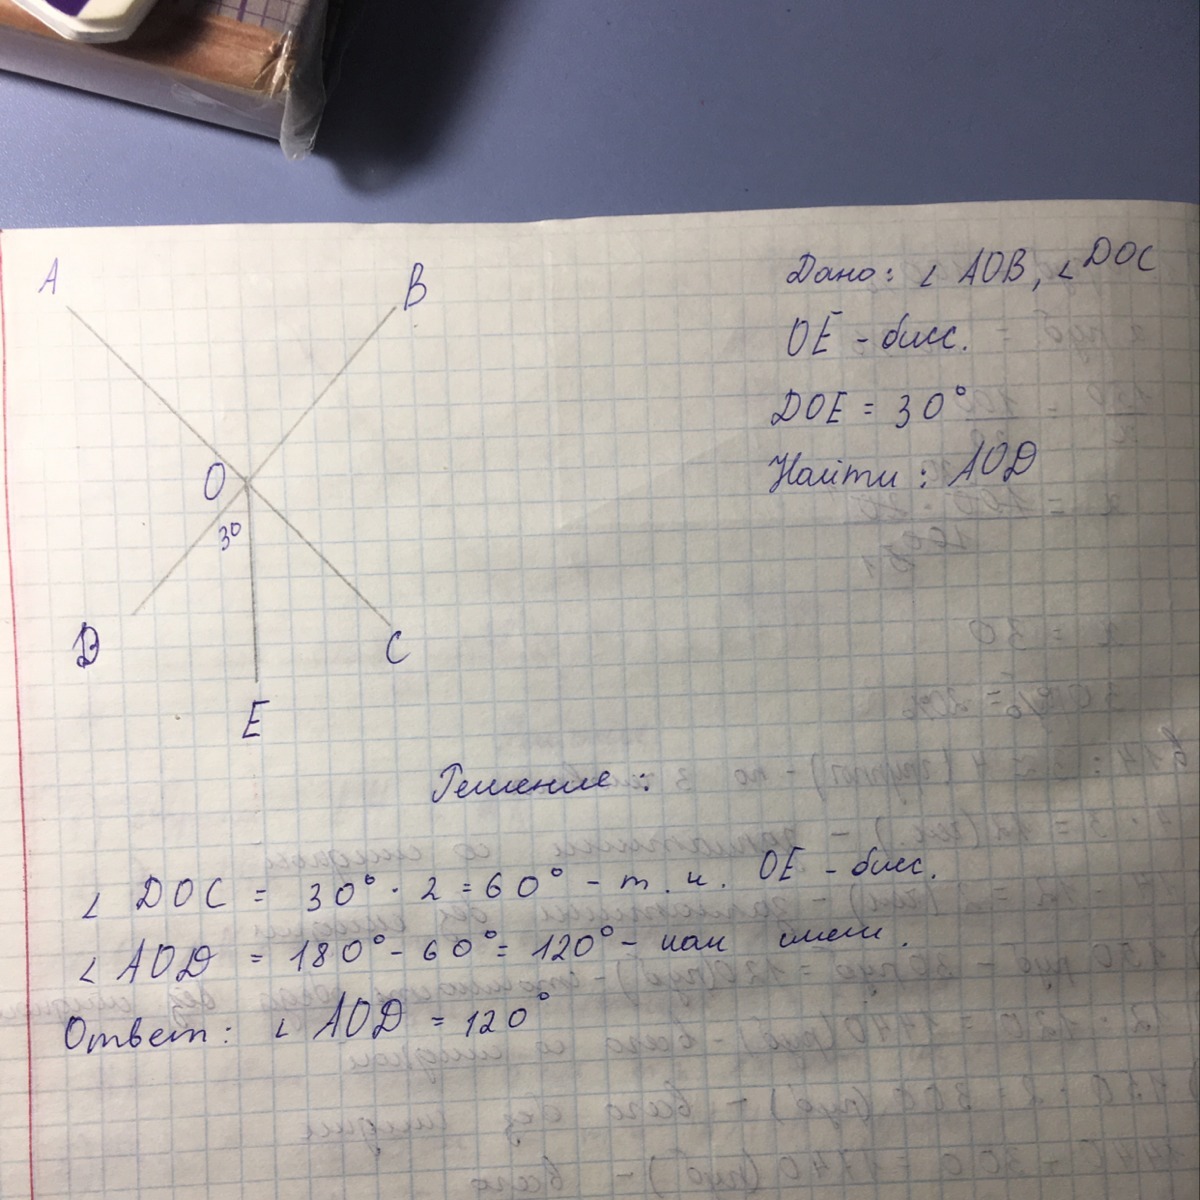 A
B
O
30
D
C
E
Дано: ∠ AOB, ∠ DOC
OE - бисс.
DOE = 30°
Найти: AOD
Решение:
∠ DOC = 30° · 2 = 60° - т. к. OE - бисс.
∠ AOD = 180° - 60° = 120° - как смеж.
Ответ: ∠ AOD = 120°